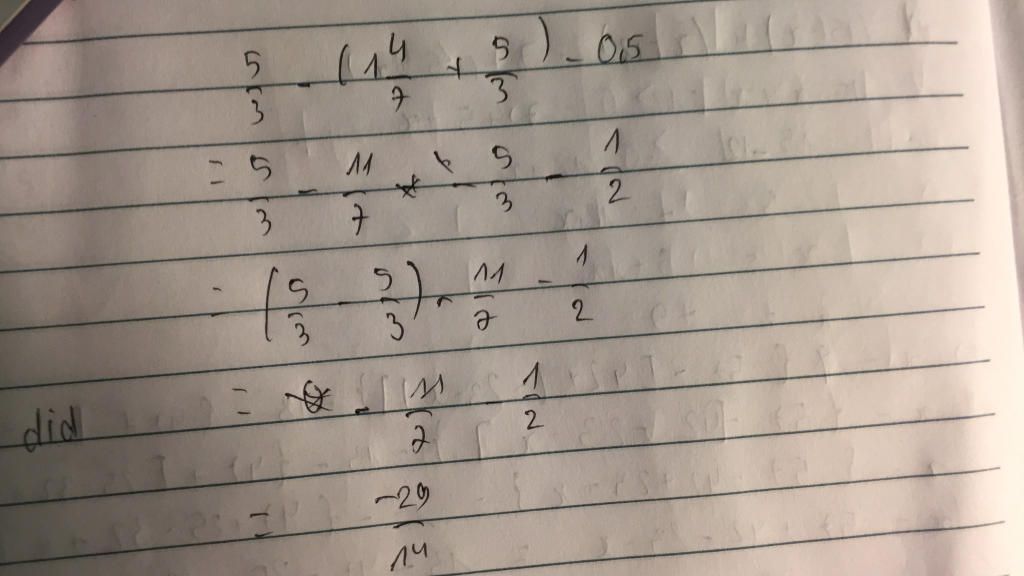 5/3 - (1 4/7 + 5/3) - 0,5
= 5/3 - 11/7 - 5/3 - 1/2
= (5/3 - 5/3) - 11/7 - 1/2
did = - 11/7 - 1/2
= -29/14